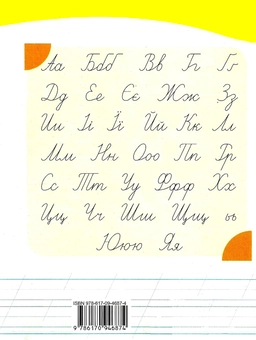 Аа Ббб Вв Гг Ґґ
Дд Ее Єє Жж Зз
Ии Іі Її Йй Кк Лл
Мм Нн Ооо Пп Рр
Сс Тт Уу Ффф Хх
Цц Чч Шш Щщ ьь
Ююю Яя
ISBN 978-617-09-4687-4
9 786170 946874